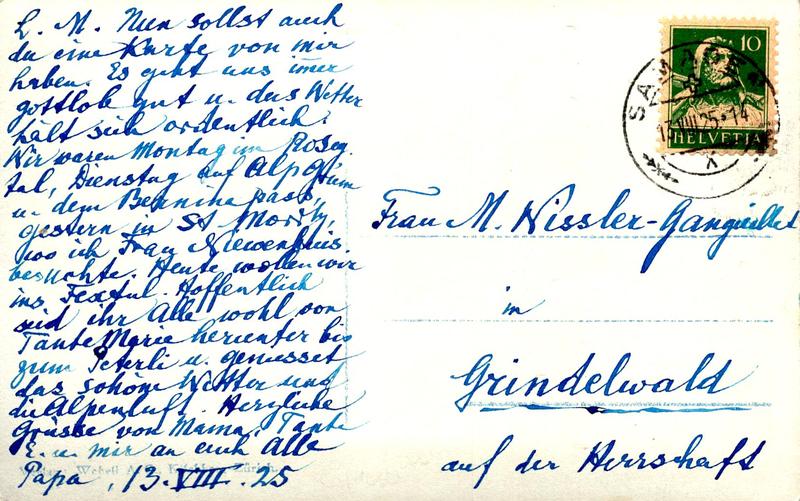 L. M. Nun sollst auch
du eine Karte von mir
haben. Es geht uns imer
gottlob gut u. das Wetter
hält sich ordentlich.
Wir waren Montag im Roseg
tal, Dienstag auf Alp Grüm
u. dem Berninapass,
gestern in St Moritz,
wo ich Frau
besuchte. Heute wollen wir
ins Fextal. Hoffentlich
seid ihr Alle wohl von
Tante Marie herunter bis
zum Peterli u. geniesset
das schöne Wetter und
die Alpenluft. Herzliche
Grüsse von Mama, Tante
E. u. mir an euch Alle
Papa, 13. VIII. 25
10
HELVETIA
SAMADEN
13.VIII.25-14
Frau M. Nissler-Ganguillet
in
Grindelwald
auf der Herrschaft